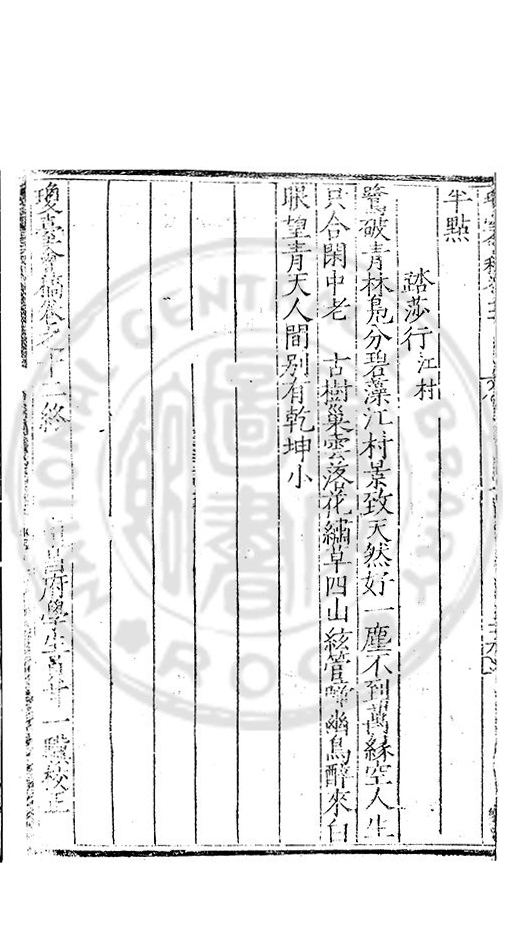 半點
踏莎行 江村
鷺破青林鳬分碧藻江村景致天然好一塵不到萬緣空人生
只合閑中老 古樹巢雲落花繡草四山絃管聽幽鳥醉來白
眼望青天人間別有乾坤小
瓊臺會稿卷之十二終 府學生 一 校正
NATIONAL CENTRAL LIBRARY
ROC